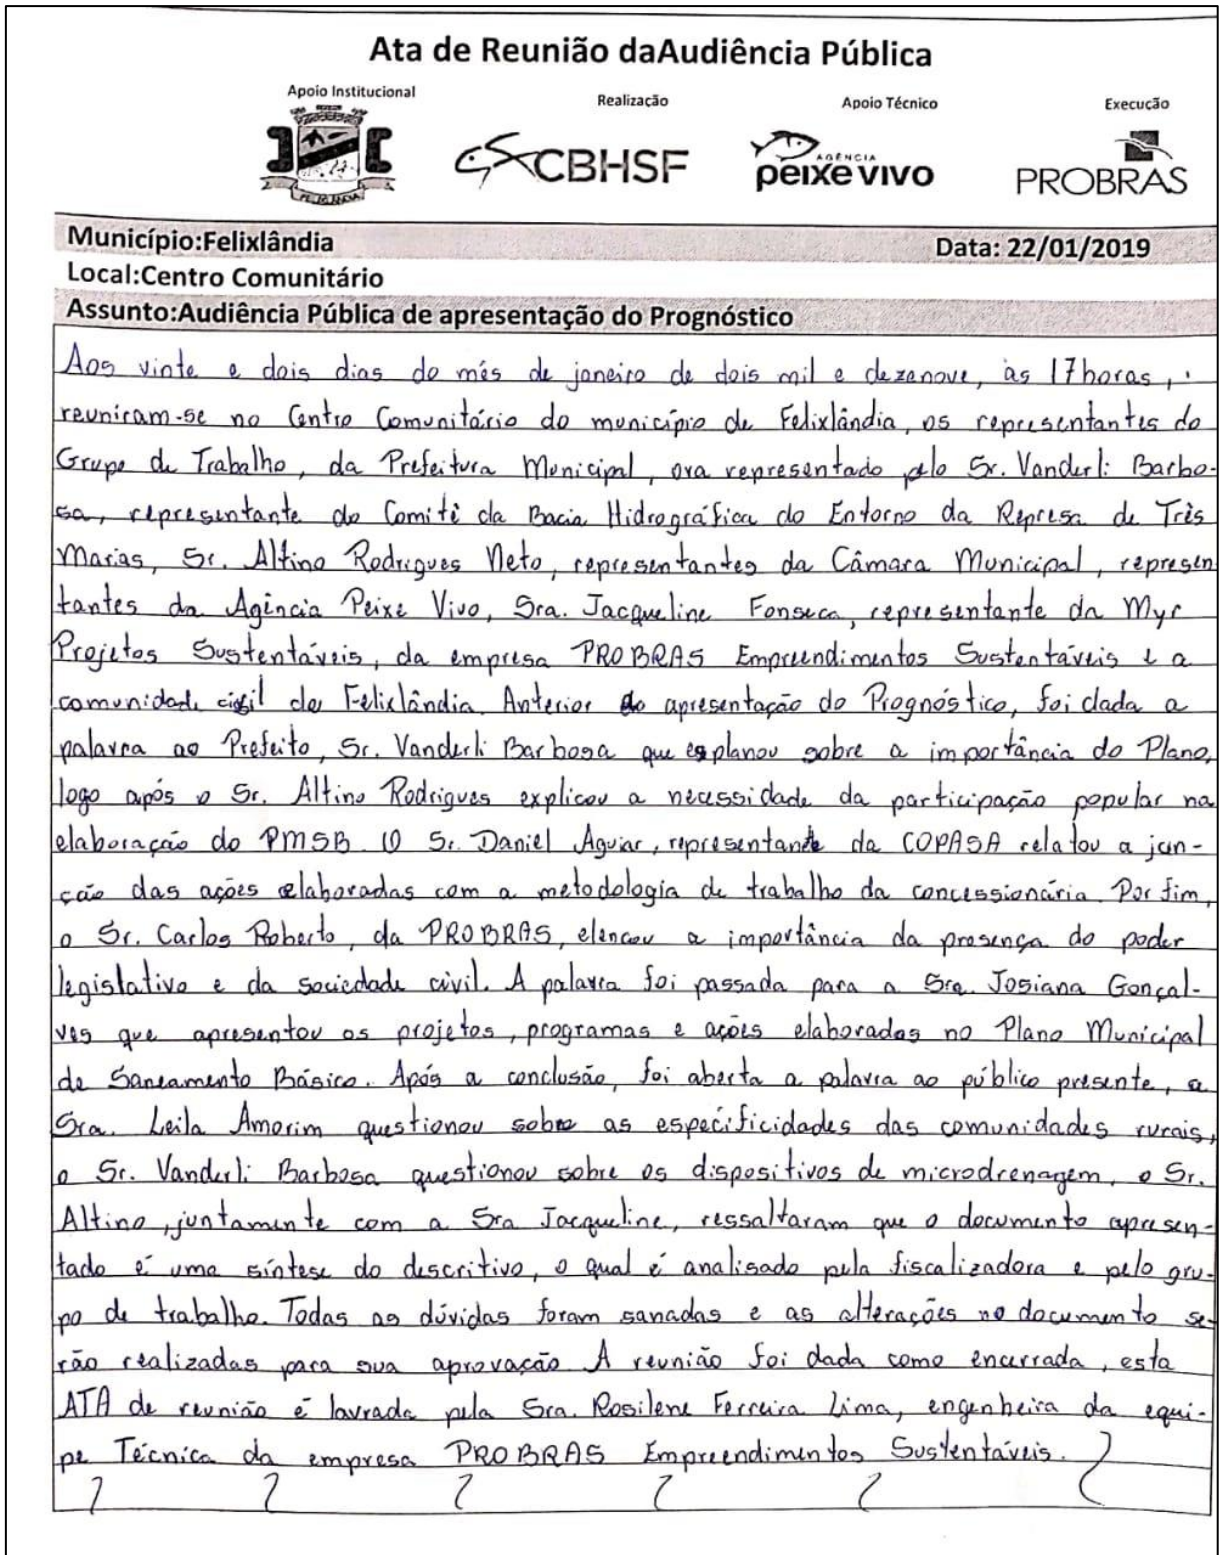 Ata de Reunião daAudiência Pública
Apoio Institucional
Realização
Apoio Técnico
Execução
CBHSF
AGÊNCIA
peixe vivo
PROBRAS
Município:Felixlândia
Data: 22/01/2019
Local:Centro Comunitário
Assunto:Audiência Pública de apresentação do Prognóstico
Aos vinte e dois dias do mês de janeiro de dois mil e dezenove, às 17horas,
reuniram-se no Centro Comunitário do município de Felixlândia, os representantes do
Grupo de Trabalho, da Prefeitura Municipal, ora representado pelo Sr. Vanderli Barbo-
sa, representante do Comitê da Bacia Hidrográfica do Entorno da Represa de Três
Marias, Sr. Altino Rodrigues Neto, representantes da Câmara Municipal, represen
tantes da Agência Peixe Vivo, Sra. Jacqueline Fonseca, representante da Myr
Projetos Sustentáveis, da empresa PROBRAS Empreendimentos Sustentáveis e a
comunidade civil de Felixlândia. Anterior apresentação do Prognóstico, foi dada a
palavra ao Prefeito, Sr. Vanderli Barbosa que explanou sobre a importância do Plano,
logo após o Sr. Altino Rodrigues explicou a necessidade da participação popular na
elaboração do PMSB. O Sr. Daniel Aguiar, representante da COPASA relatou a jun-
ção das ações elaboradas com a metodologia de trabalho da concessionária. Por fim,
o Sr. Carlos Roberto, da PROBRAS, elencou a importância da presença do poder
legislativo e da sociedade civil. A palavra foi passada para a Sra. Josiana Gonçal-
ves que apresentou os projetos, programas e ações elaboradas no Plano Municipal
de Saneamento Básico. Após a conclusão, foi aberta a palavra ao público presente, a
Sra. Leila Amorim questionou sobre as especificidades das comunidades rurais,
o Sr. Vanderli Barbosa questionou sobre os dispositivos de microdrenagem, o Sr.
Altino, juntamente com a Sra Jacqueline, ressaltaram que o documento apresen-
tado é uma síntese do descritivo, o qual é analisado pela fiscalizadora e pelo gru-
po de trabalho. Todas as dúvidas foram sanadas e as alterações no documento se-
rão realizadas para sua aprovação. A reunião foi dada como encerrada, esta
ATA de reunião é lavrada pela Sra. Rosilene Ferreira Lima, engenheira da equi-
pe Técnica da empresa PROBRAS Empreendimentos Sustentáveis.